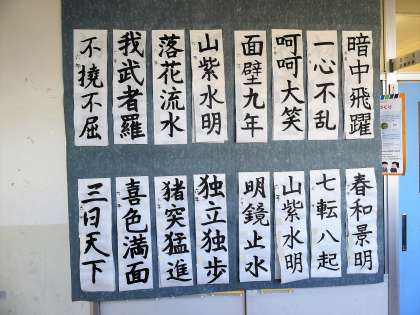 暗中飛躍
一心不乱
呵呵大笑
面壁九年
山紫水明
落花流水
我武者羅
不撓不屈
春和景明
七転八起
山紫水明
明鏡止水
独立独歩
猪突猛進
喜色満面
三日天下